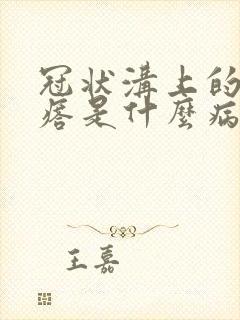 冠状溝上的
痞是什麼病
王嘉